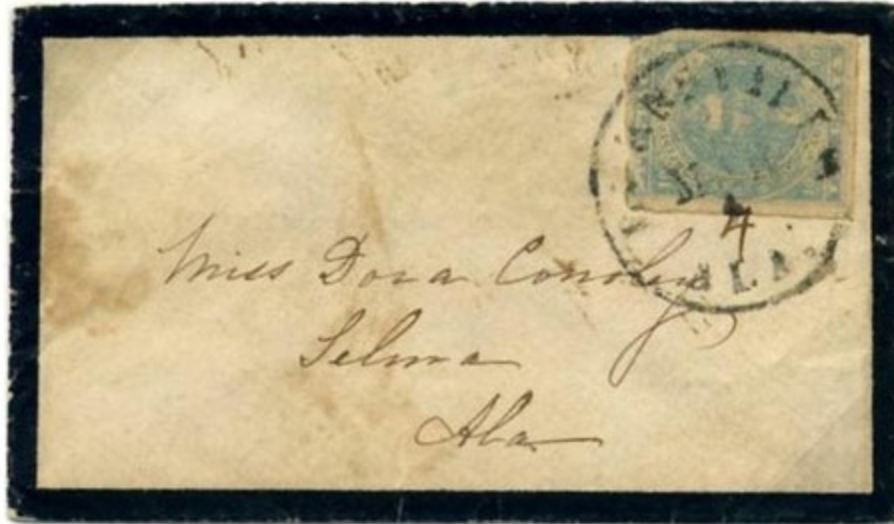 4
ALA.
Miss Dora Conoley
Selma
Ala